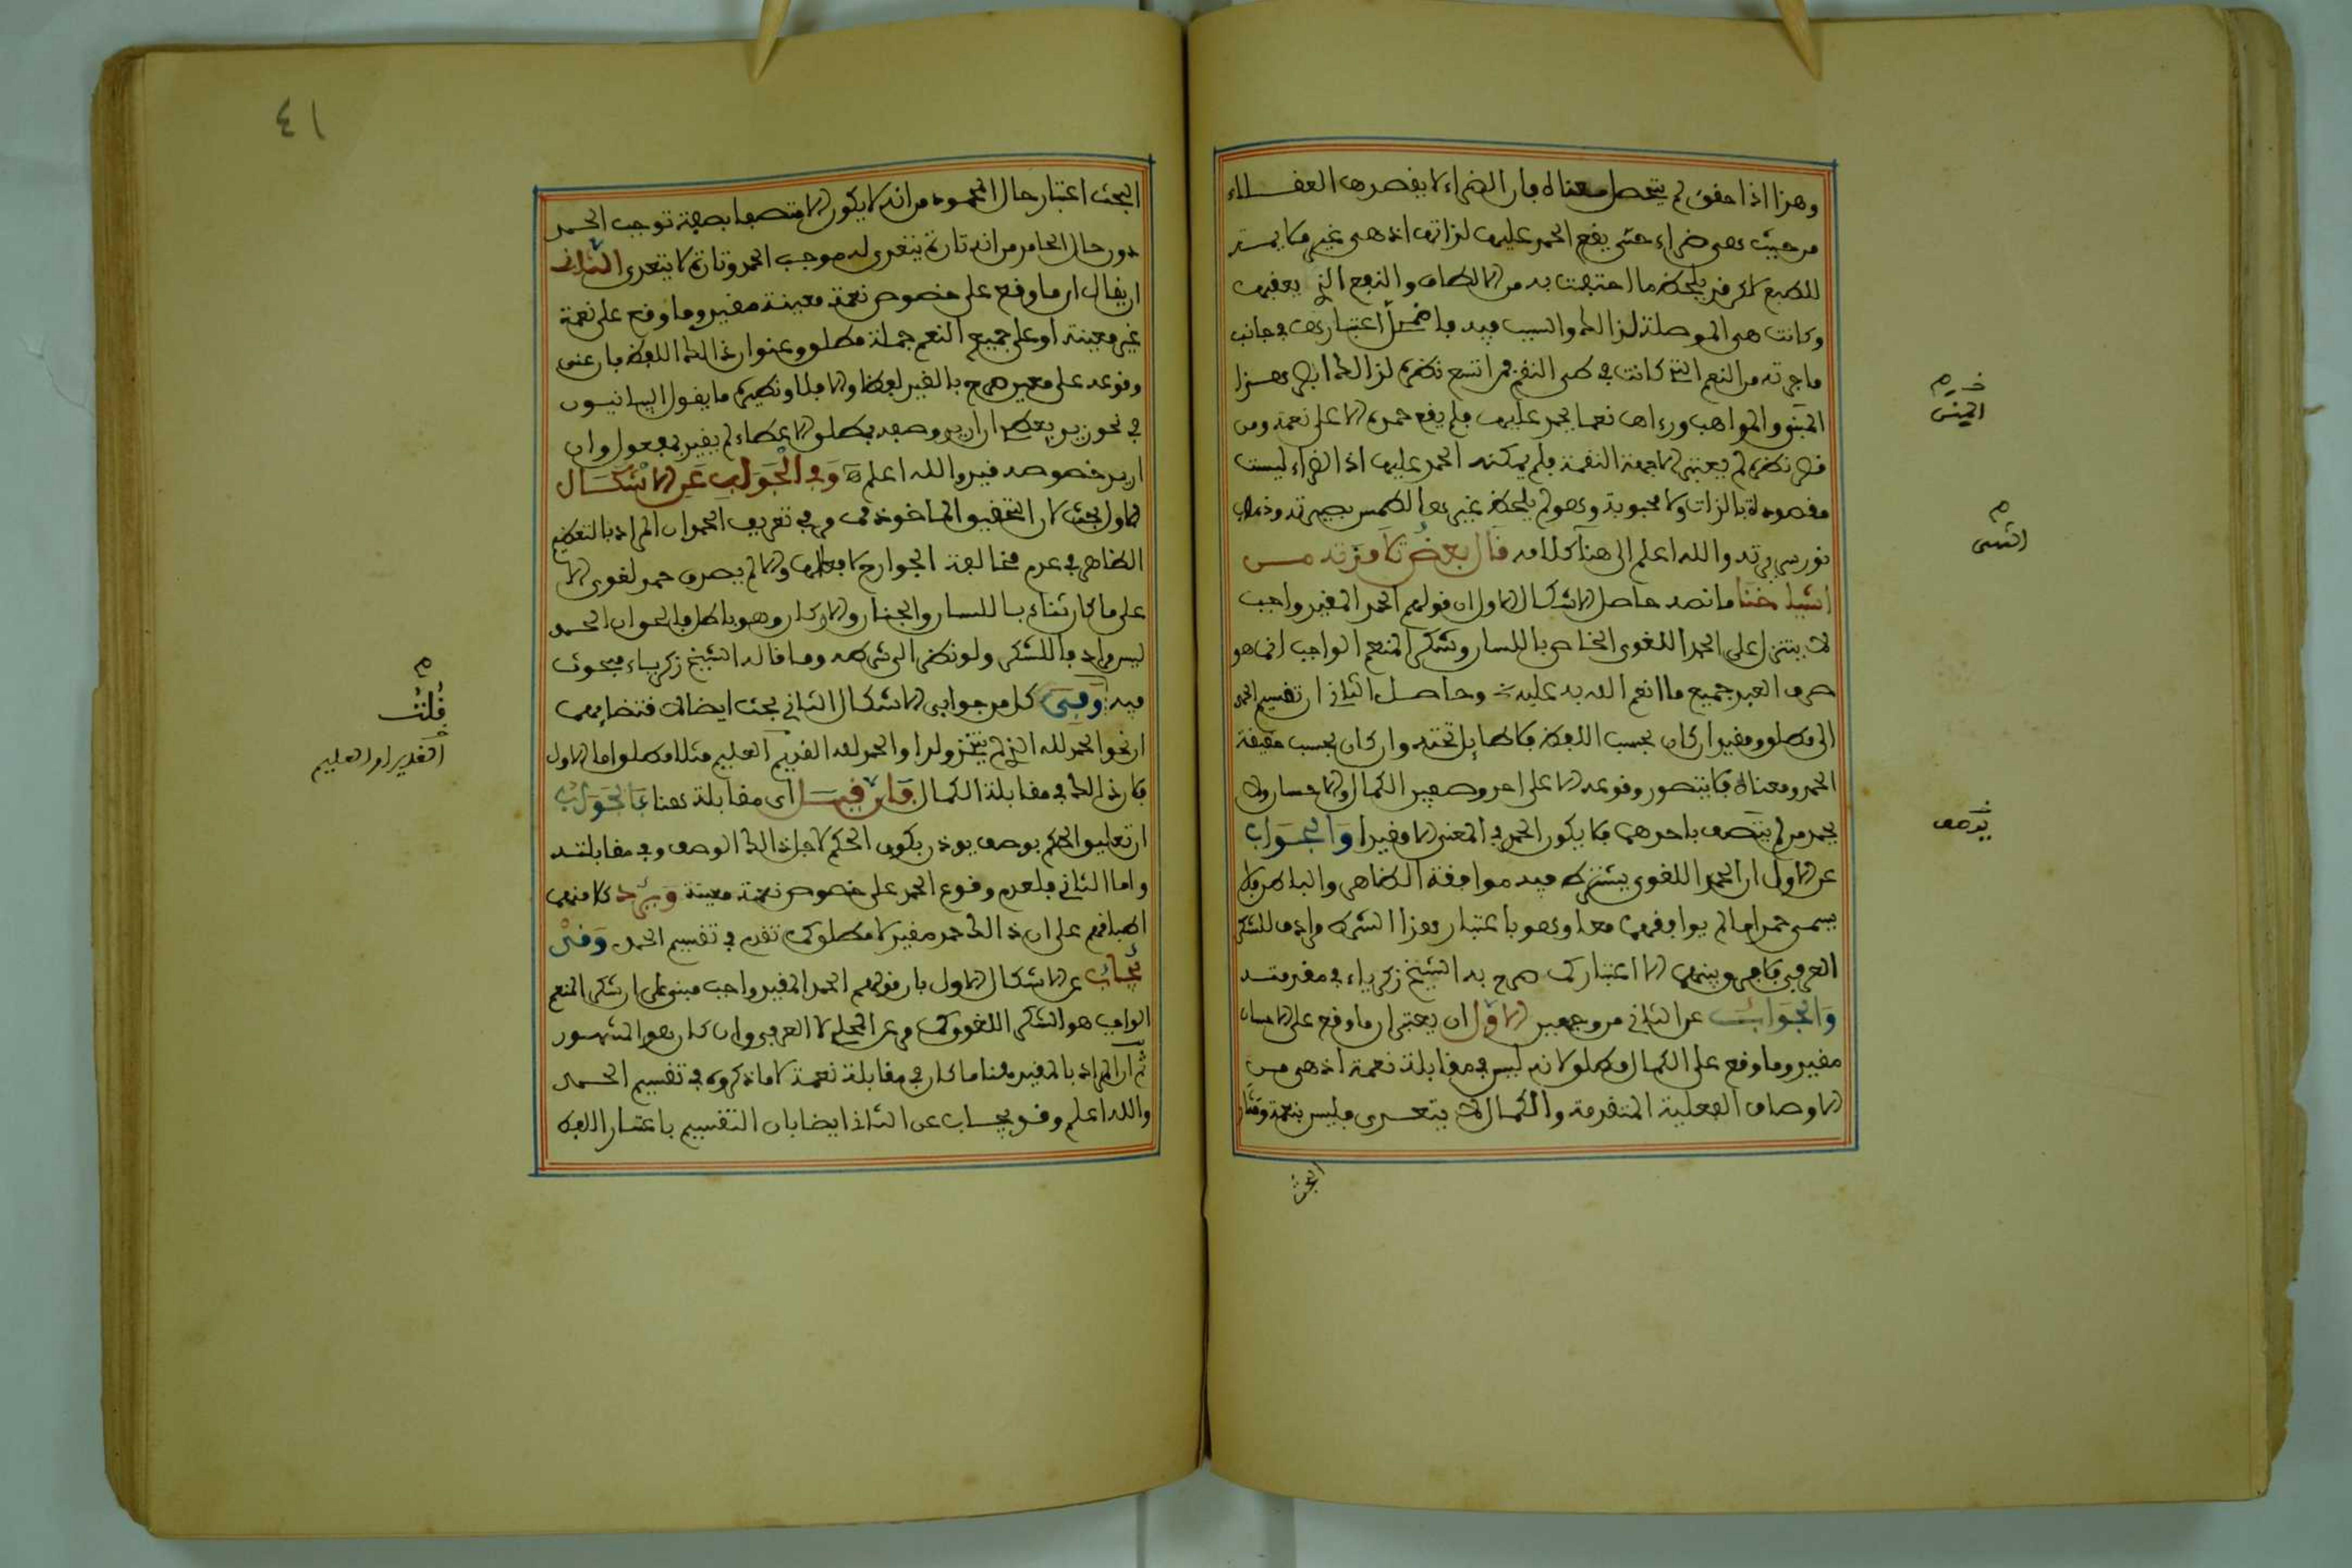 وهذا اذا حقق لم يتحصل معناه فان الضراء لا يقصدها العقلاء
من حيث هي ضراء حتى يقع الحمد عليها لذاتها اذ هي غير ملايمة
للطبع لاكن قد يلحظ ما احتفت به من الالطاف والنفع الذي يعقبها
وكانت هي الموصلة لذالك والسبب فيه فاضمحل اعتبارها في جانب
ما جرته من النعم التي كانت في طي النقم فمن اتسع نظره لذالك ابصر هذا
المنن والمواهب وراءها نعما يحمد عليها فلم يقع حمده الا على نعمة ومن
قصر نظره لم يعتبر الا جهة النقمة فلم يمكنه الحمد عليها اذ الضراء ليست
مقصودة بالذات ولا محبوبة وهو لم يلحظ غيرها لطمس بصيرته وذهاب
نور سريرته والله اعلم الى هنا كلامه قال بعض تلامذته من
اشياخنا ما نصه حاصل الاشكال الاول ان قولهم الحمد المقيد واجب
لا يتنزل على الحمد اللغوي الخاص باللسان وشكر المنعم الواجب انما هو
صرف العبد جميع ما انعم الله به عليه وحاصل الثاني ان تقسيم الحمد
الى مطلق ومقيد ان كان بحسب اللفظ فلا طايل تحته وان كان بحسب حقيقة
الحمد ومعناه فلا يتصور وقوعه الا على احد وصفين الكمال والاحسان ولا
يحمد من لم يتصف باحدهما فلا يكون الحمد في المعنى الا مقيدا والجواب
عن الاول ان الحمد اللغوي يشترط فيه موافقة الظاهر والباطن فلا
يسمى حمدا ما لم يوافقهما معا وهو باعتبار هذا الشرط مرادف للشكر
العرفي فلا فرق بينهما الا اعتبارا كما صرح به الشيخ زكرياء في مقدمته
والجواب عن الثاني من وجهين الاول ان يعتبر ان ما وقع على الاحسان
مقيد وما وقع على الكمال مطلق لانه ليس في مقابلة نعمة اذ هي من
الاوصاف الفعلية المتقدمة والكمال لا يتعدى فليس بنعمة ومثار
البحث
خ م
المنن
م
الشي
خ
يوصف
٤١
البحث اعتبار حال المحمود من انه لا يكون الا متصفا بصفة توجب الحمد
دون حال الحامد من انه تارة يتعدى له موجب الحمد وتارة لا يتعدى الثاني
ان يقال ان ما وقع على خصوص نعمة معينة مقيد وما وقع على نعمة
غير معينة او على جميع النعم جملة مطلق وعنوان ذالك اللفظ فان عنى
وقوعه على معين صرح بالقيد لفظا والا فلا ونظيره ما يقول البيانيون
في نحو زيد يعطي ان اريد وصفه بمطلق الاعطاء لم يقيد بمفعول وان
اريد خصوصه قيد والله اعلم وفي الجواب عن الاشكال
الاول بحث لان التحقيق الماخوذ مما مر في تعريف الحمد ان المراد بالتعظيم
الظاهر في عدم مخالفة الجوارح لا فعلها والا لم يصدق حمد لغوي الا
على ما كان ثناء باللسان والجنان والاركان وهو باطل فالحق ان الحمد
ليس مرادفا للشكر ولو نظر الى شرطه وما قاله الشيخ زكرياء مبحوث
فيه وفي كل من جوابي الاشكال الثاني بحث ايضا لاقتضايهما
ان نحو الحمد لله الذي لم يتخذ ولدا والحمد لله القديم العليم مثلا مطلق اما الاول
فلان ذالك في مقابلة الكمال فان قيل اي مقابلة هنا فالجواب
ان تعليق الحكم بوصف يوذن بكون الحكم لاجل ذالك الوصف وفي مقابلته
واما الثاني فلعدم وقوع الحمد على خصوص نعمة معينة ويرد كلامهما
اطباقهم على ان ذالك حمد مقيد لا مطلق كما تقدم في تقسيم الحمد وقد
يجاب عن الاشكال الاول بان قولهم الحمد المقيد واجب مبني على ان شكر المنعم
الواجب هو الشكر اللغوي كما مر عن المحلي لا العرفي وان كان هو المشهور
ثم ان المراد بالمقيد هنا ما كان في مقابلة نعمة لا ما ذكروه في تقسيم الحمد
والله اعلم وقد يجاب عن الثاني ايضا بان التقسيم باعتبار اللفظ
م
قلت
القدير او العليم